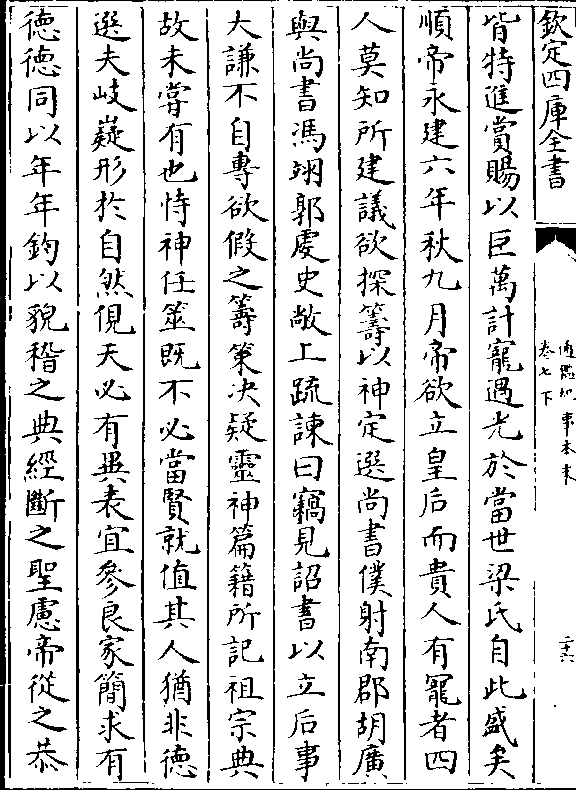 欽定四庫全書
通鑑紀事本末
卷七下
二十六
皆特進賞賜以巨萬計寵遇光於當世梁氏自此盛矣
順帝永建六年秋九月帝欲立皇后而貴人有寵者四
人莫知所建議欲探籌以神定選尚書僕射南郡胡廣
與尚書馮翊郭䖍史敞上疏諫曰竊見詔書以立后事
大謙不自專欲假之籌策決疑靈神篇籍所記祖宗典
故未嘗有也恃神任筮既不必當賢就值其人猶非德
選夫岐嶷形於自然俔天必有異表宜參良家簡求有
德德同以年年鈞以貌稽之典經斷之聖慮帝從之恭